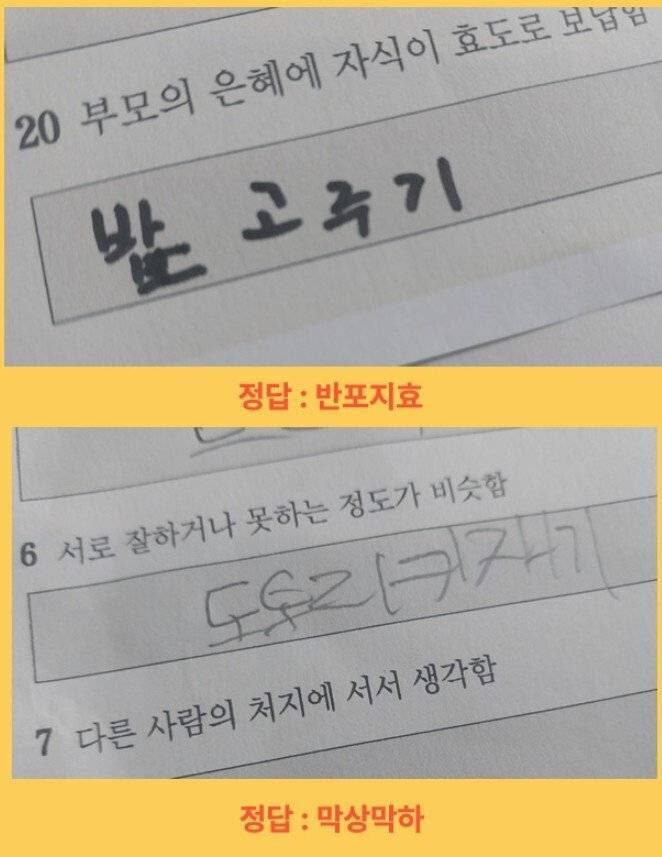 20 부모의 은혜에 자식이 효도로 보답함
밥 고르기
정답 : 반포지효
6 서로 잘하거나 못하는 정도가 비슷함
도토리 키재기
7 다른 사람의 처지에 서서 생각함
정답 : 막상막하